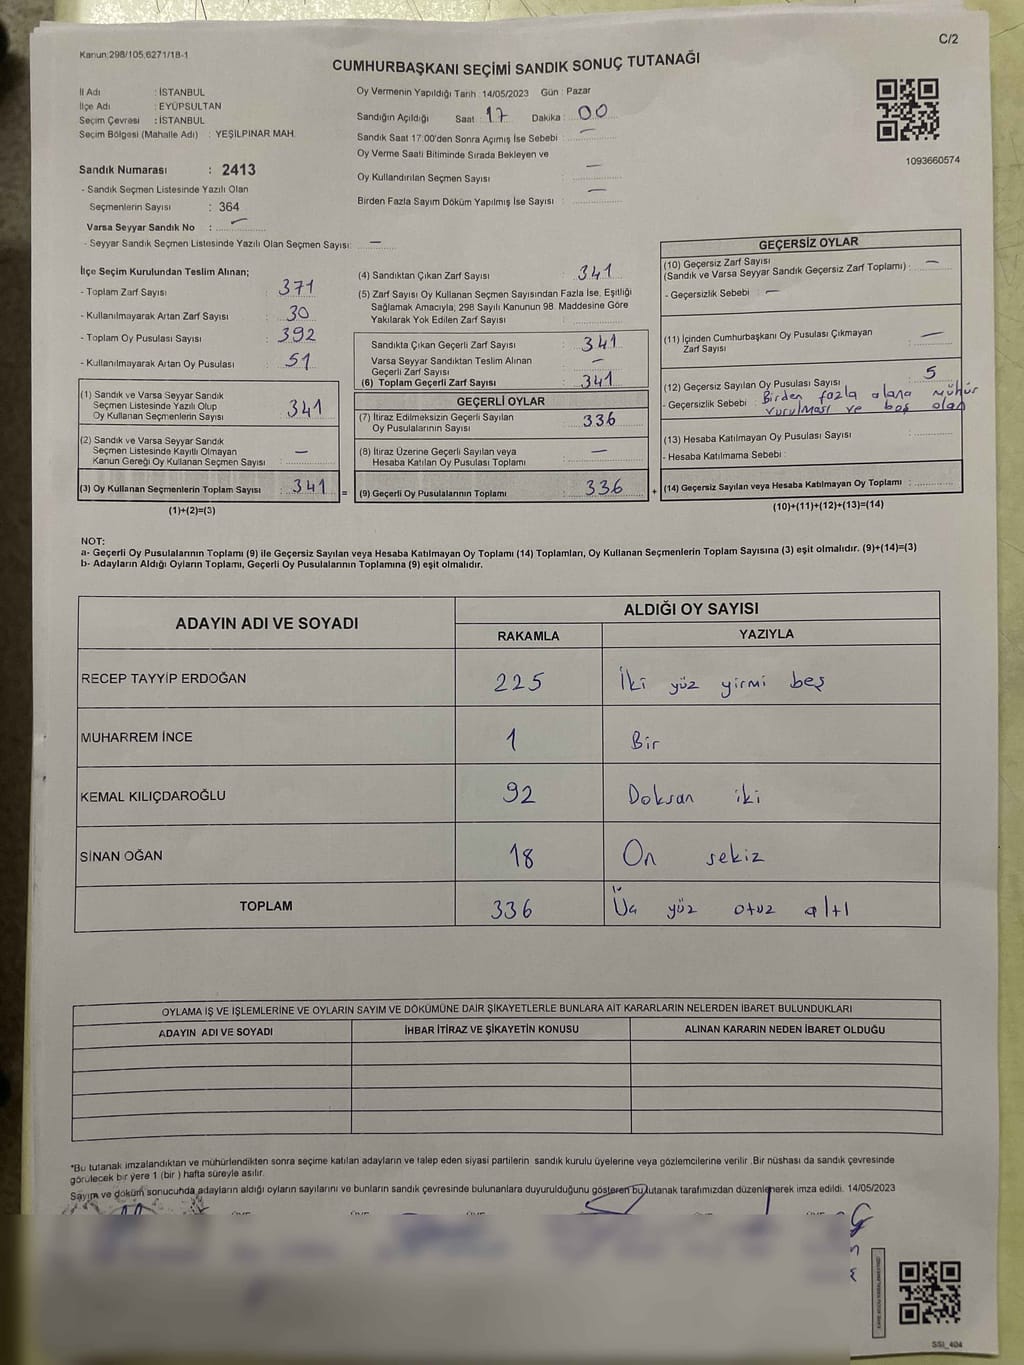 C/2
Kanun:298/105;6271/18-1
CUMHURBAŞKANI SEÇİMİ SANDIK SONUÇ TUTANAĞI
İl Adı : İSTANBUL
İlçe Adı : EYÜPSULTAN
Seçim Çevresi : İSTANBUL
Seçim Bölgesi (Mahalle Adı) : YEŞİLPINAR MAH.
Oy Vermenin Yapıldığı Tarih :14/05/2023 Gün : Pazar
Sandığın Açıldığı Saat : 17 Dakika : 00
Sandık Saat 17:00'den Sonra Açımış İse Sebebi : —
Oy Verme Saati Bitiminde Sırada Bekleyen ve
Oy Kullandırılan Seçmen Sayısı : —
Birden Fazla Sayım Döküm Yapılmış İse Sayısı : —
1093660574
Sandık Numarası : 2413
- Sandık Seçmen Listesinde Yazılı Olan
Seçmenlerin Sayısı : 364
Varsa Seyyar Sandık No : —
- Seyyar Sandık Seçmen Listesinde Yazılı Olan Seçmen Sayısı: —
İlçe Seçim Kurulundan Teslim Alınan;
- Toplam Zarf Sayısı : 371
- Kullanılmayarak Artan Zarf Sayısı : 30
- Toplam Oy Pusulası Sayısı : 392
- Kullanılmayarak Artan Oy Pusulası : 51
(1) Sandık ve Varsa Seyyar Sandık
Seçmen Listesinde Yazılı Olup
Oy Kullanan Seçmenlerin Sayısı : 341
(2) Sandık ve Varsa Seyyar Sandık
Seçmen Listesinde Kayıtlı Olmayan
Kanun Gereği Oy Kullanan Seçmen Sayısı : —
(3) Oy Kullanan Seçmenlerin Toplam Sayısı : 341 =
(1)+(2)=(3)
(4) Sandıktan Çıkan Zarf Sayısı : 341
(5) Zarf Sayısı Oy Kullanan Seçmen Sayısından Fazla İse, Eşitliği
Sağlamak Amacıyla; 298 Sayılı Kanunun 98. Maddesine Göre
Yakılarak Yok Edilen Zarf Sayısı :
Sandıkta Çıkan Geçerli Zarf Sayısı : 341
Varsa Seyyar Sandıktan Teslim Alınan
Geçerli Zarf Sayısı : —
(6) Toplam Geçerli Zarf Sayısı : 341
GEÇERLİ OYLAR
(7) İtiraz Edilmeksizin Geçerli Sayılan
Oy Pusulalarının Sayısı : 336
(8) İtiraz Üzerine Geçerli Sayılan veya
Hesaba Katılan Oy Pusulası Toplamı : —
(9) Geçerli Oy Pusulalarının Toplamı : 336 +
GEÇERSİZ OYLAR
(10) Geçersiz Zarf Sayısı
(Sandık ve Varsa Seyyar Sandık Geçersiz Zarf Toplamı) : —
- Geçersizlik Sebebi : —
(11) İçinden Cumhurbaşkanı Oy Pusulası Çıkmayan
Zarf Sayısı : —
(12) Geçersiz Sayılan Oy Pusulası Sayısı : 5
- Geçersizlik Sebebi : Birden fazla alana mühür
vurulması ve boş olan
(13) Hesaba Katılmayan Oy Pusulası Sayısı :
- Hesaba Katılmama Sebebi :
(14) Geçersiz Sayılan veya Hesaba Katılmayan Oy Toplamı :
(10)+(11)+(12)+(13)=(14)
NOT:
a- Geçerli Oy Pusulalarının Toplamı (9) ile Geçersiz Sayılan veya Hesaba Katılmayan Oy Toplamı (14) Toplamları, Oy Kullanan Seçmenlerin Toplam Sayısına (3) eşit olmalıdır. (9)+(14)=(3)
b- Adayların Aldığı Oyların Toplamı, Geçerli Oy Pusulalarının Toplamına (9) eşit olmalıdır.
ADAYIN ADI VE SOYADI ALDIĞI OY SAYISI
RAKAMLA YAZIYLA
RECEP TAYYİP ERDOĞAN 225 İki yüz yirmi beş
MUHARREM İNCE 1 Bir
KEMAL KILIÇDAROĞLU 92 Doksan iki
SİNAN OĞAN 18 On sekiz
TOPLAM 336 Üç yüz otuz altı
OYLAMA İŞ VE İŞLEMLERİNE VE OYLARIN SAYIM VE DÖKÜMÜNE DAİR ŞİKAYETLERLE BUNLARA AİT KARARLARIN NELERDEN İBARET BULUNDUKLARI
ADAYIN ADI VE SOYADI İHBAR İTİRAZ VE ŞİKAYETİN KONUSU ALINAN KARARIN NEDEN İBARET OLDUĞU
*Bu tutanak imzalandıktan ve mühürlendikten sonra seçime katılan adayların ve talep eden siyasi partilerin sandık kurulu üyelerine veya gözlemcilerine verilir .Bir nüshası da sandık çevresinde
görülecek bir yere 1 (bir ) hafta süreyle asılır.
Sayım ve döküm sonucunda adayların aldığı oyların sayılarını ve bunların sandık çevresinde bulunanlara duyurulduğunu gösteren bu tutanak tarafımızdan düzenlenerek imza edildi. 14/05/2023
SSI_404